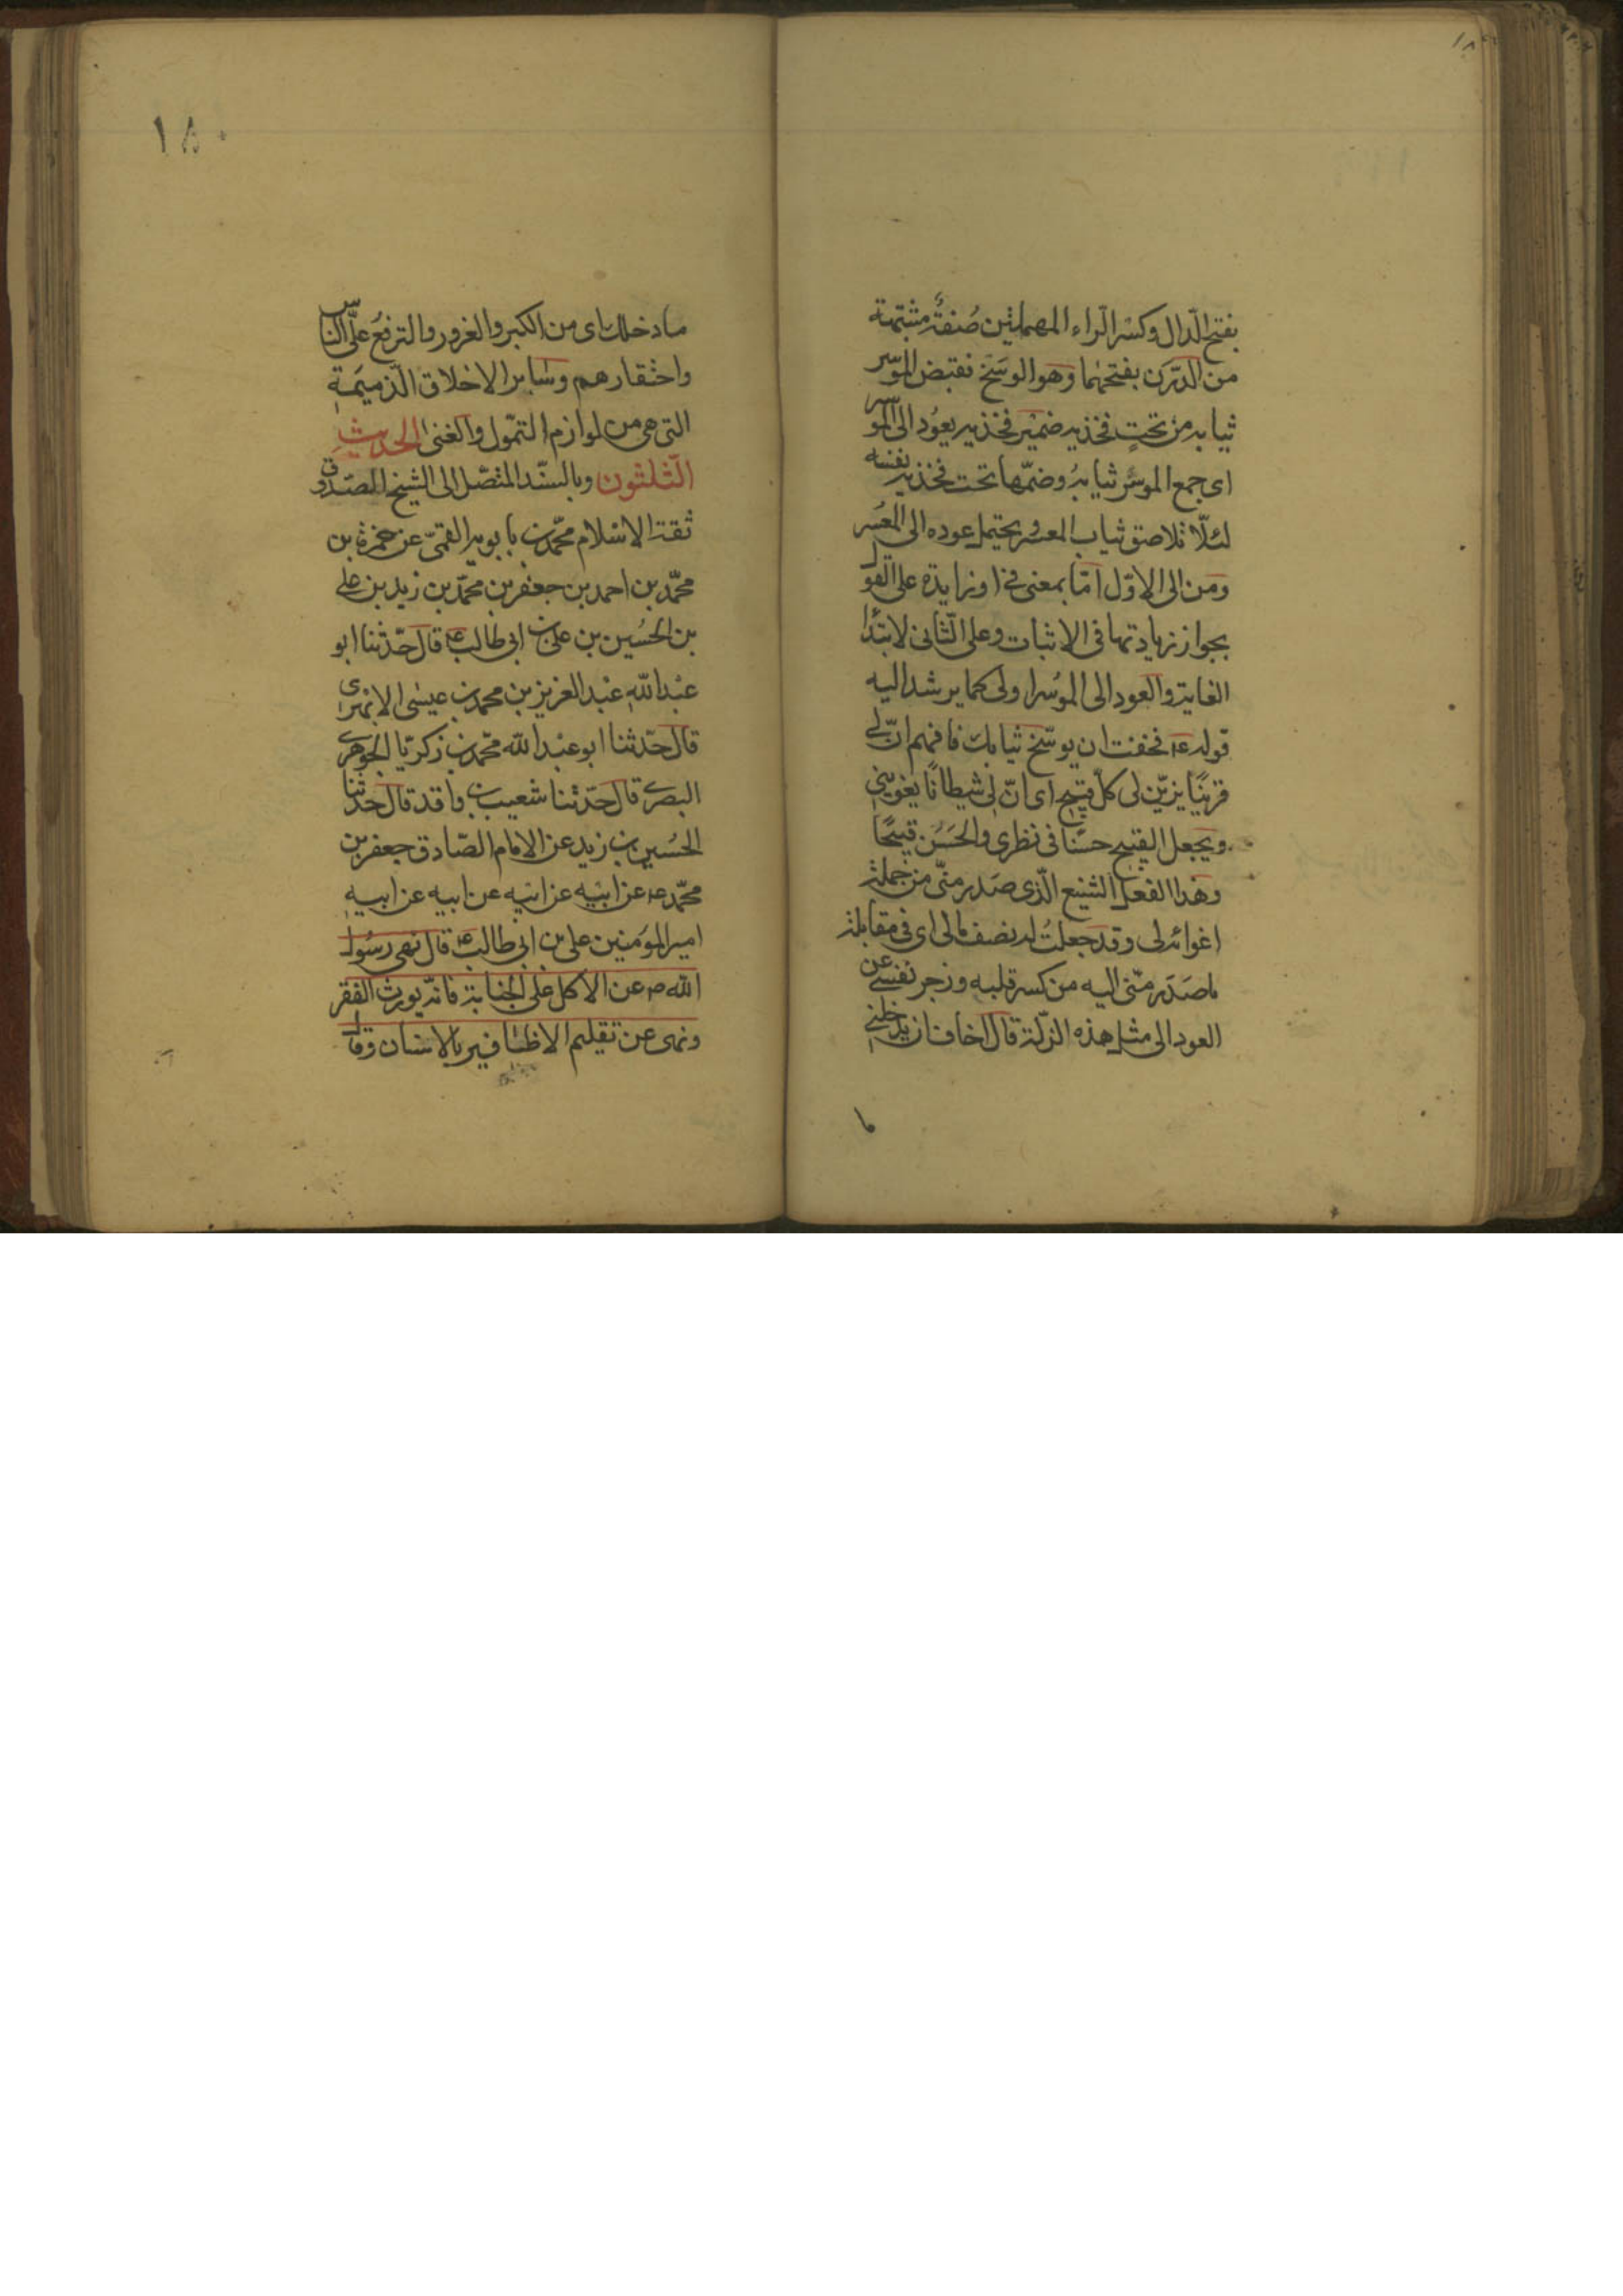 بفتح الدال وكسر الراء المهملتين صفة مشبهة
من الدرن بفتحهما وهو الوسخ فقبض الموسر
ثيابه من تحت فخذيه ضمير فخذيه يعود الى الموسر
اى جمع الموسر ثيابه وضمّها تحت فخذيه نفسه
لئلّا تلاصق ثياب المعسر ويحتمل عوده الى المعسر
ومن الى الاوّل امّا بمعنى فى او زايدة على القول
بجواز زيادتها فى الاثبات وعلى الثانى لابتداء
الغاية والعود الى الموسر اولى كما يرشد اليه
قوله ع فخفت ان يوسّخ ثيابك فافهم انّ لى
قرينًا يزيّن لى كلّ قبيح اى انّ لى شيطانًا يغوينى
ويجعل القبيح حسنًا فى نظرى والحَسَن قبيحًا
وهذا الفعل الشنيع الّذى صدر منّى من جملة
اغوائه لى وقد جعلتُ له نصف مالى اى فى مقابلة
ما صدر منّى اليه من كسر قلبه وزجر نفسى عن
العود الى مثل هذه الزلّة قال اخاف ان يدخلنى
ما
١٨٠
ما دخلك اى من الكبر والغرور والترفع على الناس
واحتقارهم وسائر الاخلاق الذميمة
التى هى من لوازم التموّل والغنى الحديث
الثلثون وبالسند المتصل الى الشيخ الصدوق
ثقة الاسلام محمّد بن بابويه القمىّ عن حمزة بن
محمّد بن احمد بن جعفر بن محمّد بن زيد بن على
بن الحُسين بن على بن ابى طالب ع قال حدّثنا ابو
عبد الله عبد العزيز بن محمد بن عيسى الابهرى
قال حدّثنا ابو عبد الله محمّد بن زكريّا الجوهرى
البصرى قال حدّثنا شعيب بن واقد قال حدثنا
الحُسين بن زيد عن الامام الصّادق جعفر بن
محمّد ع عن ابيه عن ابيه عن ابيه عن ابيه
امير المؤمنين على بن ابى طالب ع قال نهى رسول
الله ص عن الاكل على الجنابة فانّه يورث الفقر
ونهى عن تقليم الاظافير بالاسنان وقال